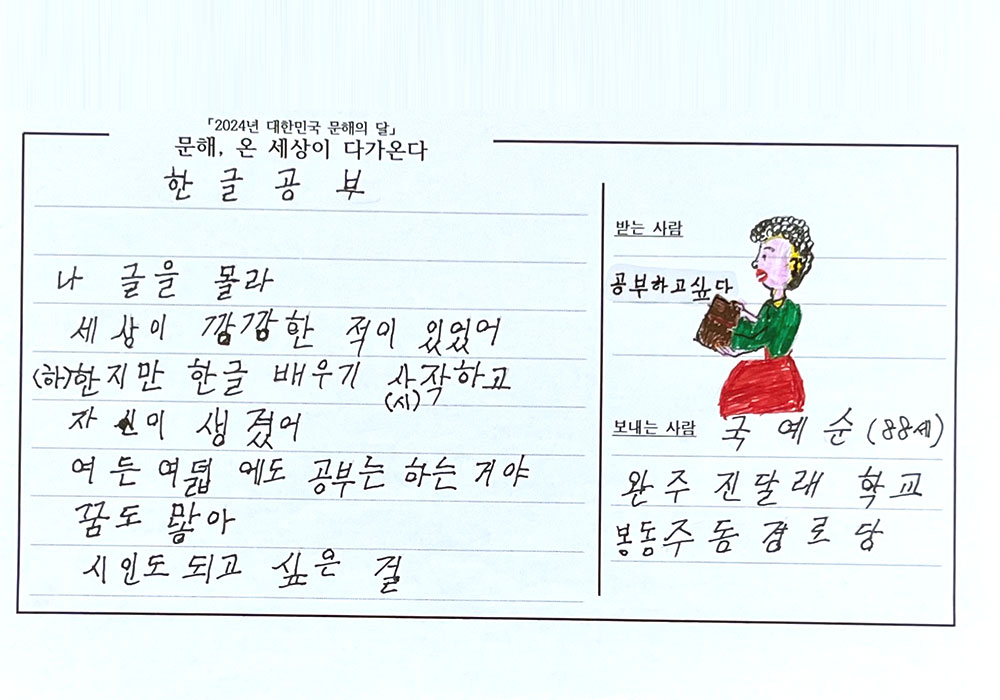 「2024년 대한민국 문해의 달」
문해, 온 세상이 다가온다
한글공부
나 글을 몰라
세상이 깜깜한 적이 있었어
(하)한지만 한글 배우기 사작하고
(시)
자신이 생겼어
여든여덟에도 공부는 하는 거야
꿈도 많아
시인도 되고 싶은 걸
받는 사람
공부하고싶다
보내는 사람 국예순 (88세)
완주 진달래 학교
봉동주동경로당